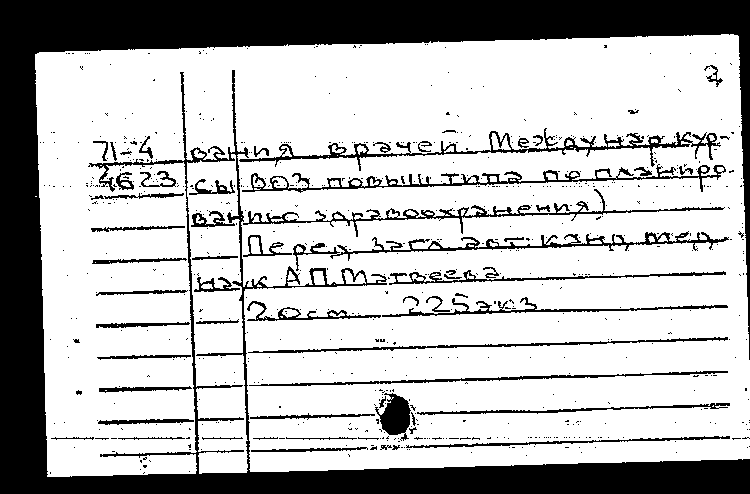 2
71-4 вания врачей. Междунар. кур-
4623 сы ВОЗ повыш. типа по планиро-
ванию здравоохранения)
Перед загл. авт.: канд. мед.
наук А.П. Матвеева
20 см 225 экз